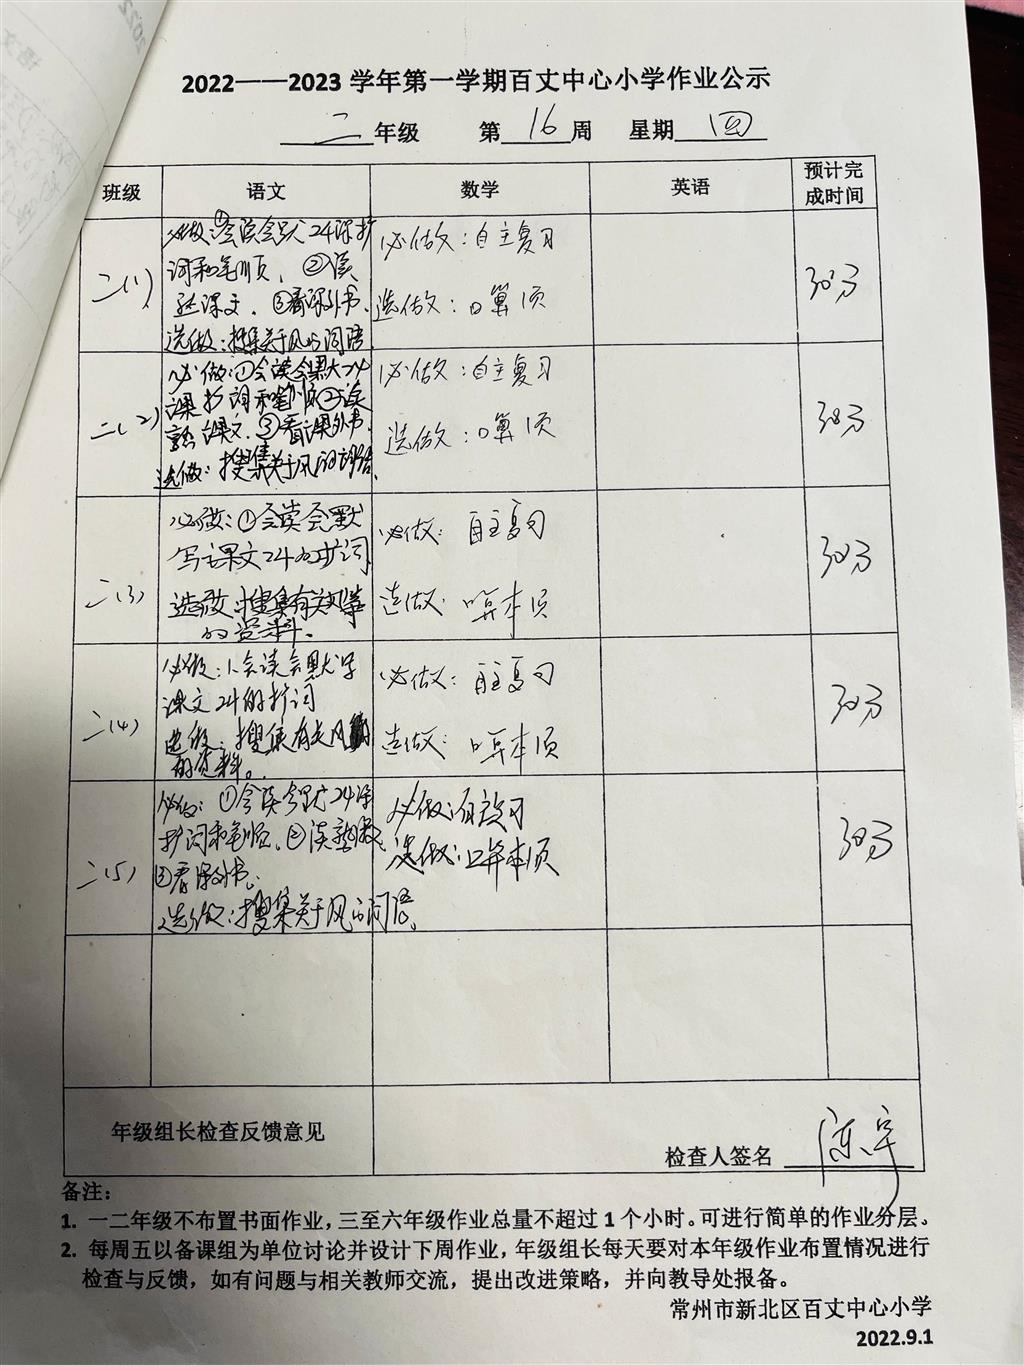 2022——2023 学年第一学期百丈中心小学作业公示
二 年级 第 16 周 星期 四
班级 语文 数学 英语 预计完成时间
二(1)
必做:①会读会默24课扩
词和笔顺、②读
熟课文、③看课外书、
选做:搜集关于风的词语
必做:自主复习
选做:口算1页
30分
二(2)
必做:①会读会默大24
课扩词和笔顺②读
熟课文、③看课外书、
选做:搜集关于风的词语
必做:自主复习
选做:口算1页
30分
二(3)
必做:①会读会默
写课文24的扩词
选做:搜集有关
的资料。
必做:自主复习
选做:口算本1页
30分
二(4)
必做:1、会读会默写
课文24的扩词
选做:搜集有关风
的资料。
必做:自主复习
选做:口算本1页
30分
二(5)
必做:①会读会默24课
扩词和笔顺、②读熟
③看课外书、
选做:搜集关于风的词语、
必做:自主复习
选做:口算本1页
30分
年级组长检查反馈意见
检查人签名
备注:
1. 一二年级不布置书面作业,三至六年级作业总量不超过 1 个小时。可进行简单的作业分层。
2. 每周五以备课组为单位讨论并设计下周作业,年级组长每天要对本年级作业布置情况进行
检查与反馈,如有问题与相关教师交流,提出改进策略,并向教导处报备。
常州市新北区百丈中心小学
2022.9.1